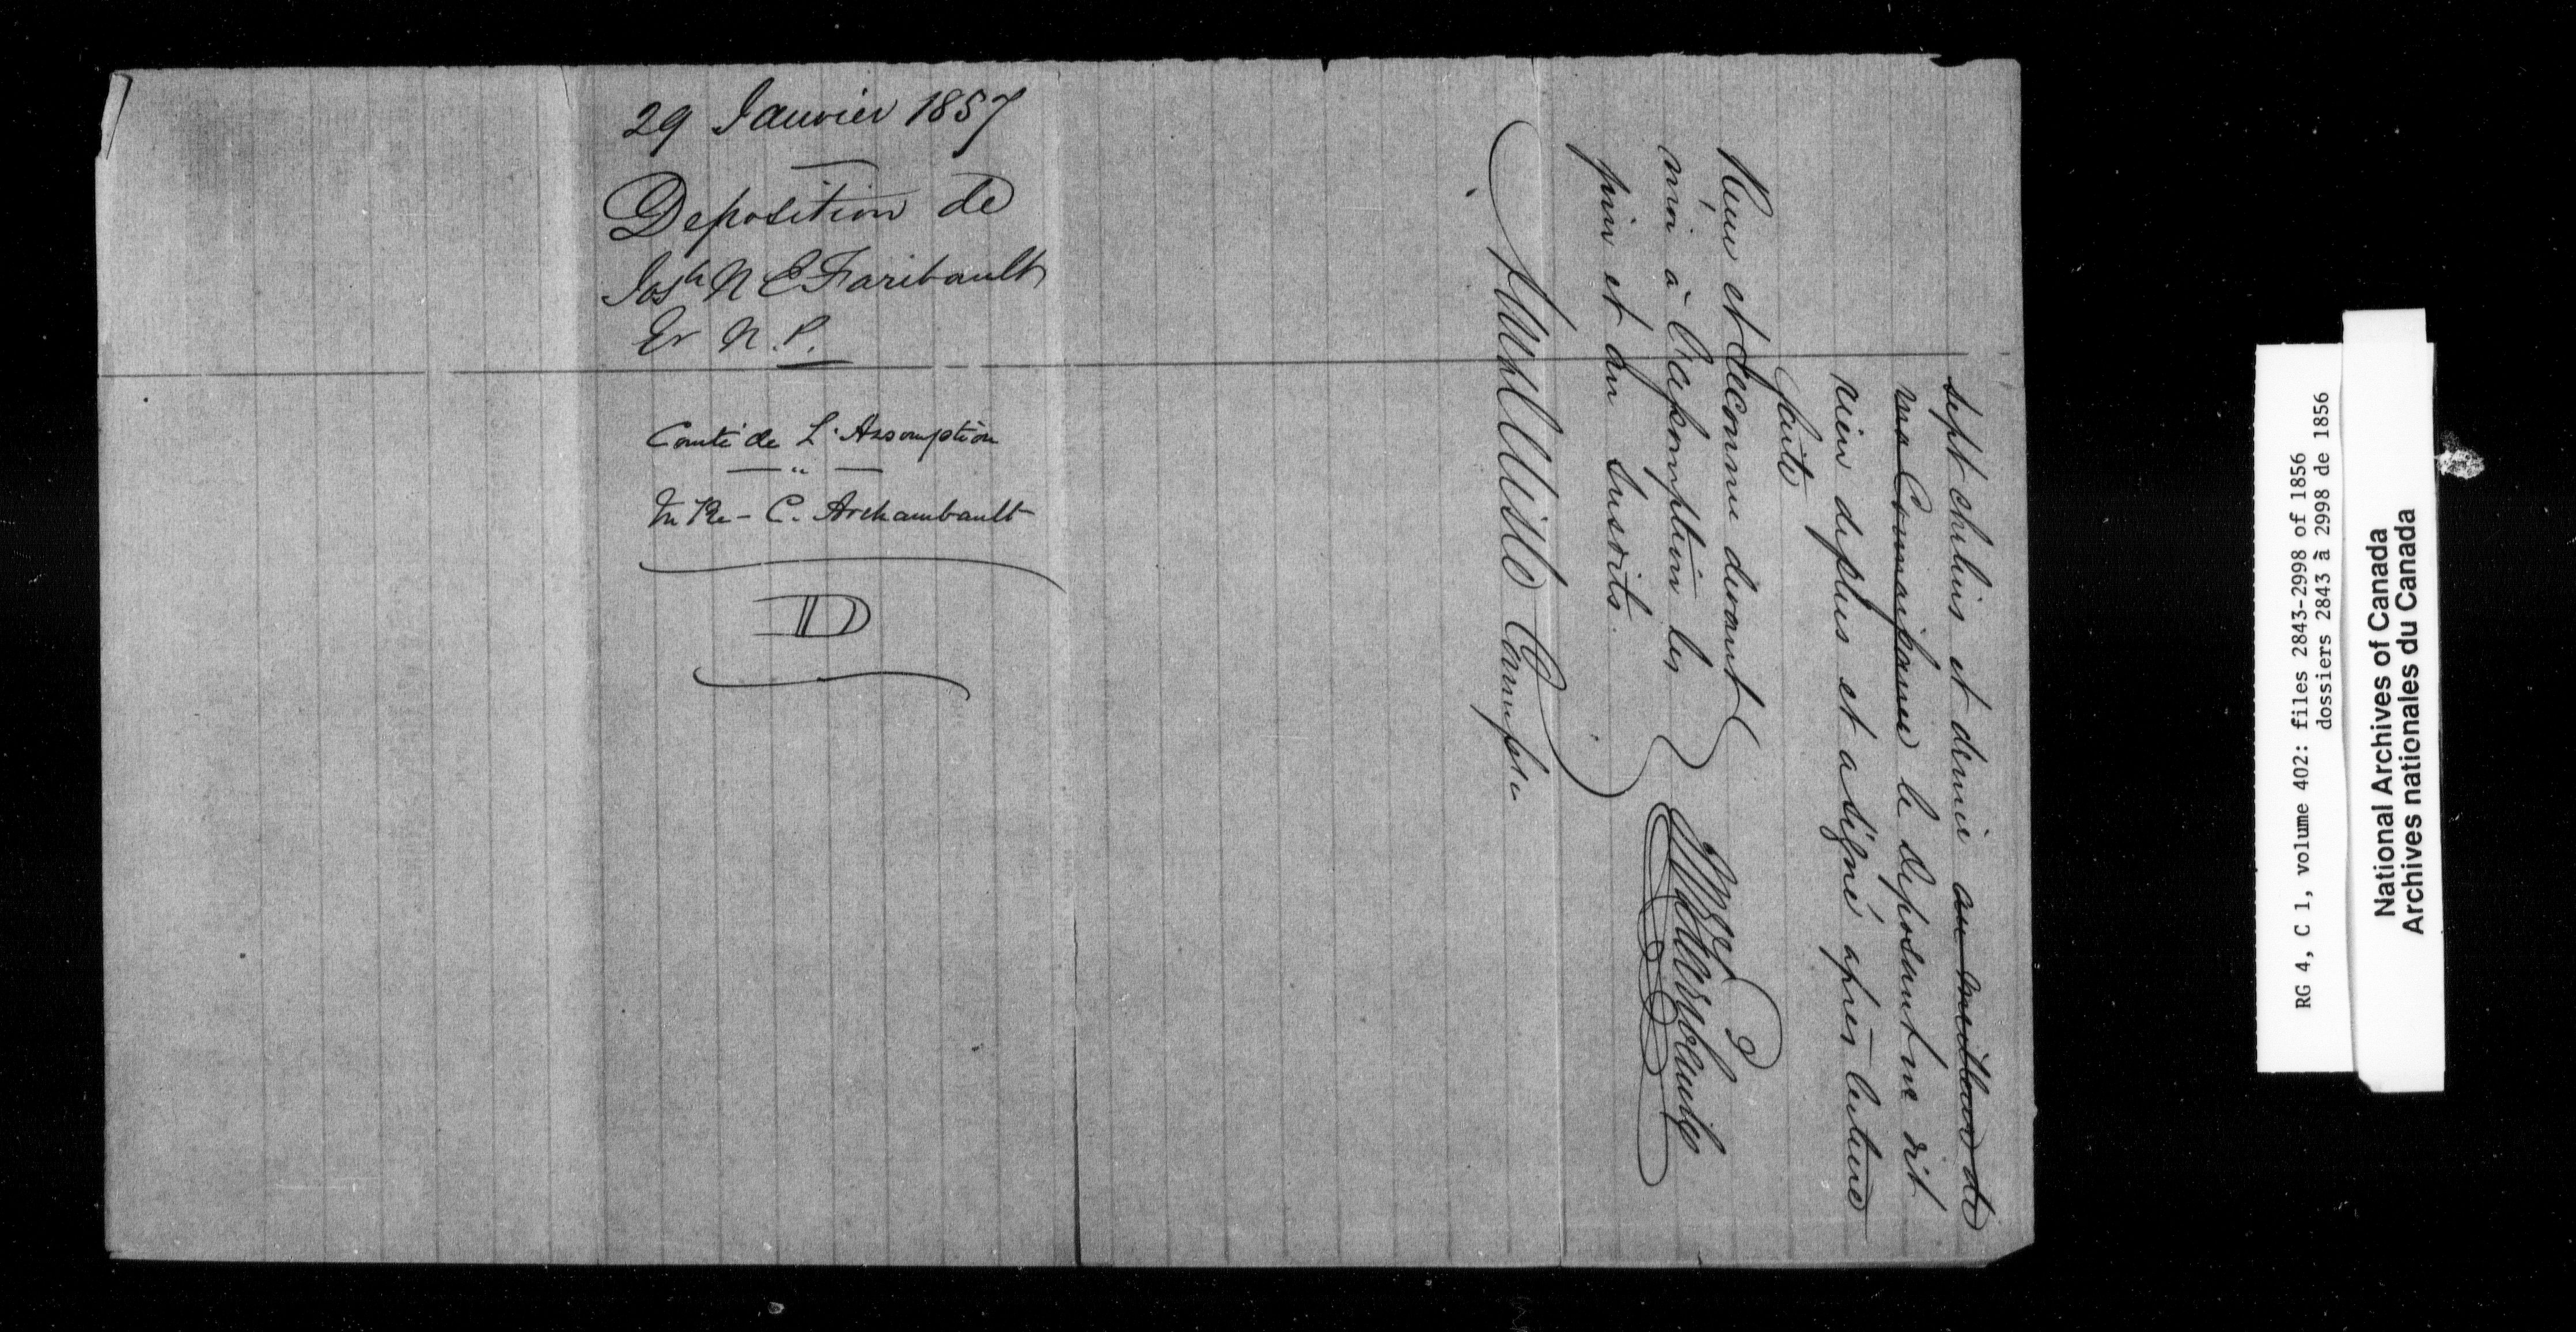 29 Janvier 1857
Deposition de
Josh N E Faribault
Er N.P.
Comté de L'Assomption
In Re - C. Archambault
D
sept chelins et demie au meilleur de
ma Connaissance le deposant ne dit
rien deplus et a signé après lecture
faite
Reçu et reconnu devant
moi à L'assomption les
jour et an susdits.
Commissr
RG 4, C 1, volume 402: files 2843-2998 of 1856
dossiers 2843 à 2998 de 1856
National Archives of Canada
Archives nationales du Canada